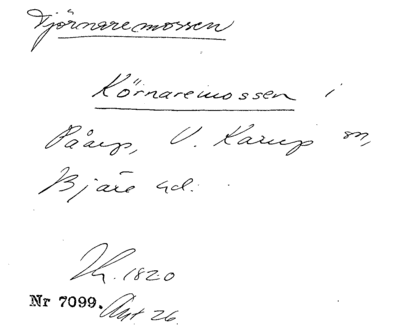 Tjörnaremossen
Körnaremossen i
Påarp, V. Karup sn,
Bjäre hd.
1820
Nr 7099. Akt 26.